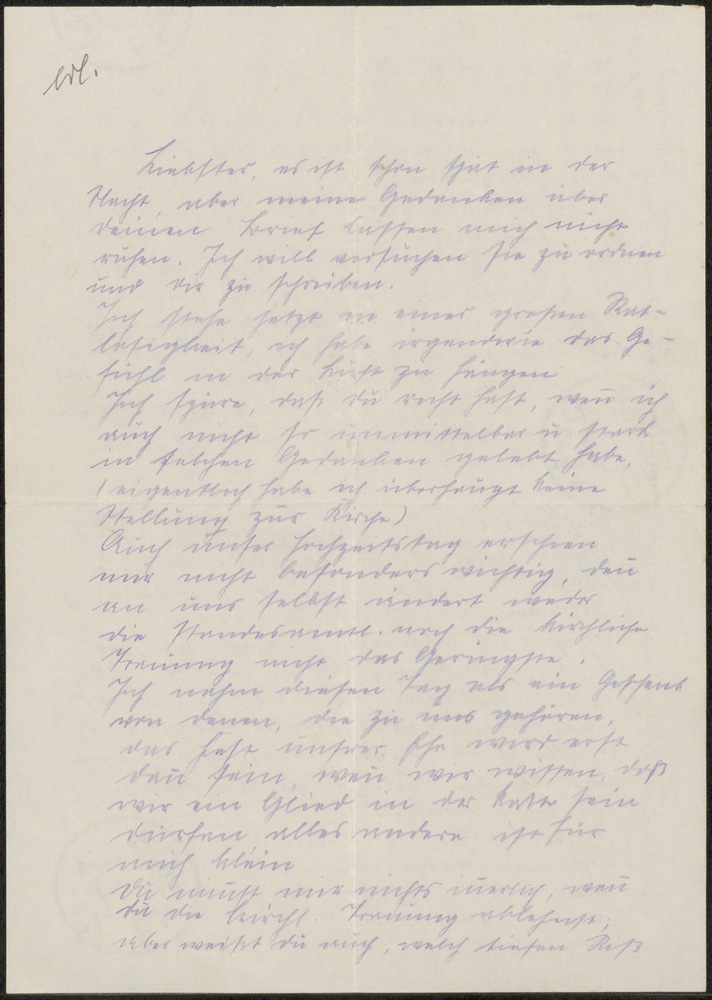 erl.
Liebster, es ist schon spät in der
Nacht, aber meine Gedanken über
deinen Brief lassen mich nicht
ruhen. Ich will versuchen sie zu ordnen
und dir zu schreiben.
Ich stehe jetzt in einer grossen Rat-
losigkeit, ich habe irgendwie das Ge-
fühl in der Luft zu hängen
Ich spüre, daß du recht hast, wen̄ ich
auch nicht so unmittelbar u. stark
in solchen Gedanken gelebt habe,
(eigentlich habe ich überhaupt keine
Stellung zur Kirche)
Auch unser Hochzeitstag erschien
mir nicht besonders wichtig, den̄
an uns selbst ändert weder
die standesamtl. noch die kirchliche
Trauung nicht das Geringste.
Ich nahm diesen Tag als ein Geschenk
von denen, die zu uns gehören,
das Fest unsrer Ehe wird erst
dan̄ sein, wen̄ wir wissen, daß
wir ein Glied in der Kette sein
dürfen alles andere ist für
mich klein
Du must mir nichts, wen̄
du die kirchl. Trauung ablehnst,
aber weißt du auch, welch tiefen Riß